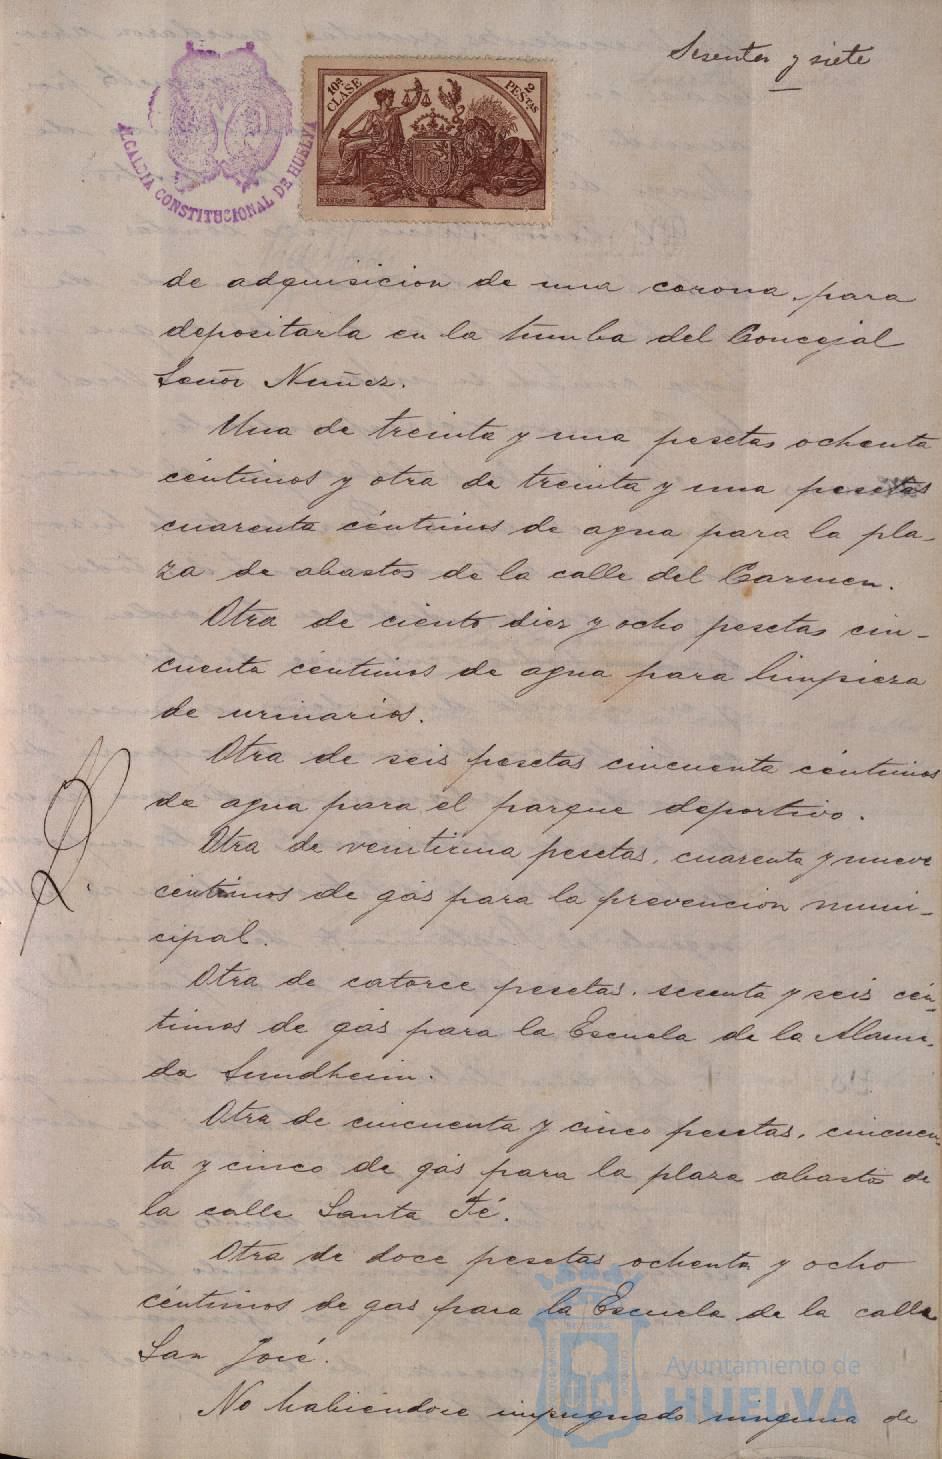 Sesenta y siete
10ª CLASE
2 PESETAS
ALCALDIA CONSTITUCIONAL DE HUELVA
de adquisicion de una corona para
depositarla en la tumba del Concejal
Señor Nuñez.
Una de treinta y una pesetas ochenta
céntimos y otra de treinta y una pesetas
cuarenta céntimos de agua para la pla-
za de abastos de la calle del Carmen.
Otra de ciento diez y ocho pesetas cin-
cuenta céntimos de agua para limpieza
de urinarios.
Otra de seis pesetas cincuenta céntimos
de agua para el parque deportivo.
Otra de veintiuna pesetas, cuarenta y nueve
céntimos de gás para la prevencion muni-
cipal.
Otra de catorce pesetas, sesenta y seis cén-
timos de gás para la Escuela de la Alame-
da Sundheim.
Otra de cincuenta y cinco pesetas, cincuen-
ta y cinco de gás para la plaza abastos de
la calle Santa Fé.
Otra de doce pesetas ochenta y ocho
céntimos de gas para la Escuela de la calle
San José.
No habiéndose impugnado ninguna de
Ayuntamiento de
HUELVA